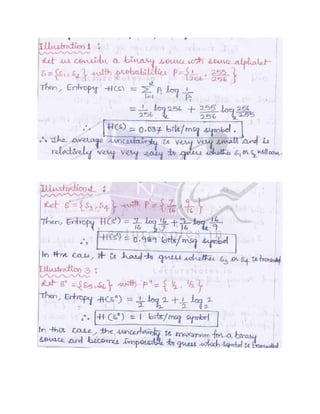 Illustration 1 :
Let us consider a binary source with source alphabet
S={S1, S2} with probabilities P={1/256, 255/256}
Then, Entropy H(S) = Σ Pi log 1/Pi
i=1
= 1/256 log 256 + 255/256 log 256/255
∴ H(S) = 0.037 bits/msg symbol.
∴ The average uncertainity is very very small and is
relatively very very easy to guess whether S1 or S2 will occur.
Illustration 2 :
Let S'={S3, S4} with P'={7/16, 9/16}
Then, Entropy H(S') = 7/16 log 16/7 + 9/16 log 16/9
∴ H(S') = 0.989 bits/msg symbol
In this case, it is hard to guess whether S3 or S4 is transmitted
LectureNotes.in
Illustration 3 :
Let S"={S5, S6} with P"={1/2, 1/2}
Then, Entropy H(S") = 1/2 log 2 + 1/2 log 2
∴ H(S") = 1 bits/msg symbol
In this case, the uncertainity is maximum for a binary
source and becomes impossible to guess which symbol is transmitted